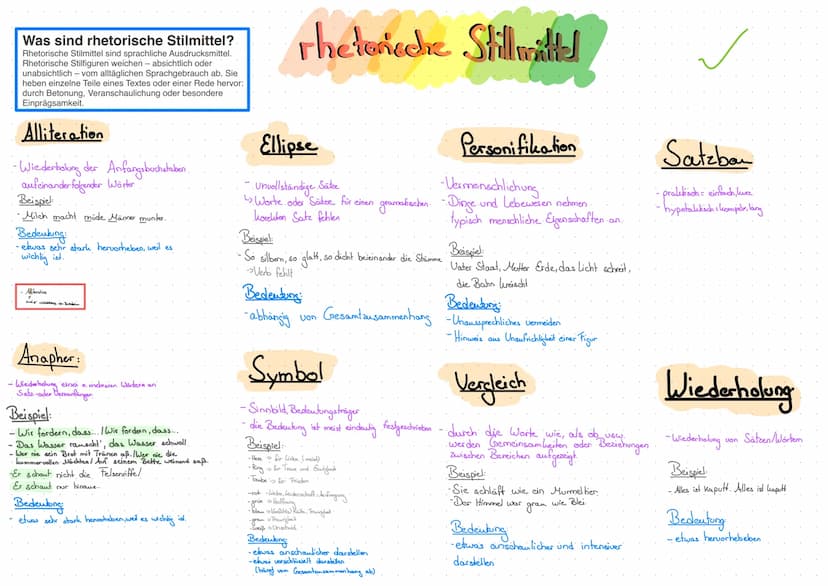 rhetorische Stillmittel
Was sind rhetorische Stilmittel?
Rhetorische Stilmittel sind sprachliche Ausdrucksmittel.
Rhetorische Stilfiguren weichen – absichtlich oder
unabsichtlich – vom alltäglichen Sprachgebrauch ab. Sie
heben einzelne Teile eines Textes oder einer Rede hervor:
durch Betonung, Veranschaulichung oder besondere
Einprägsamkeit.
Alliteration
- Wiederholung der Anfangsbuchstaben
aufeinanderfolgender Wörter
Beispiel:
- Milch macht müde Männer munter.
Bedeutung:
- etwas sehr stark hervorheben, weil es
wichtig ist.
Ellipse
- Unvollständige Sätze
↳ Worte oder Sätze für einen
korrekten Satz fehlen
Beispiel:
- So silbern, so glatt, so dicht beieinander die Stämme
→ Verb fehlt
Bedeutung:
- abhängig von Gesamtzusammenhang
Personifikation
- Vermenschlichung
- Dinge und Lebewesen nehmen
typisch menschliche Eigenschaften an.
Beispiel:
Vater Staat, Mutter Erde, das Licht schreit,
die Bahn kreischt
Bedeutung:
- Unaussprechliches vermeiden
- Hinweis aus Unaufrichtigkeit einer Figur
Satzbau
- = einfach, kurz
- = komplex, lang
Anapher:
- Wiederholung eines o. mehreren Wörtern an
Satz- oder Versanfängen
Beispiel:
- Wir fordern, dass... / Wir fordern, dass...
- Das Wasser rauscht', das Wasser schwoll
- Wer nie sein Brot mit Tränen aß. / Wer nie die
kummervollen Nächte / Auf seinem Bette weinend saß.
- Er schaut nicht die Felsenriffe /
Er schaut nur hinauf
Bedeutung:
- etwas sehr stark hervorheben, weil es wichtig ist.
Symbol
- Sinnbild, Bedeutungsträger
- die Bedeutung ist meist eindeutig festgeschrieben
Beispiel:
- Ring → für Treue und
- Taube → für Frieden
- rot → Liebe, Leidenschaft, Aufregung
- grün → Hoffnung
- blau →
Bedeutung:
- etwas anschaulicher darstellen
- etwas verschlüsselt darstellen
(hängt vom Gesamtzusammenhang ab)
Vergleich
- durch die Worte wie, als ob usw.
werden Gemeinsamkeiten oder Beziehungen
zwischen Bereichen aufgezeigt
Beispiel:
- Sie schläft wie ein Murmeltier.
- Der Himmel war grau wie Blei
Bedeutung:
- etwas anschaulicher und intensiver
darstellen
Wiederholung
- Wiederholung von Sätzen/Wörtern
Beispiel:
- Alles ist kaputt. Alles ist kaputt
Bedeutung:
- etwas hervorheben